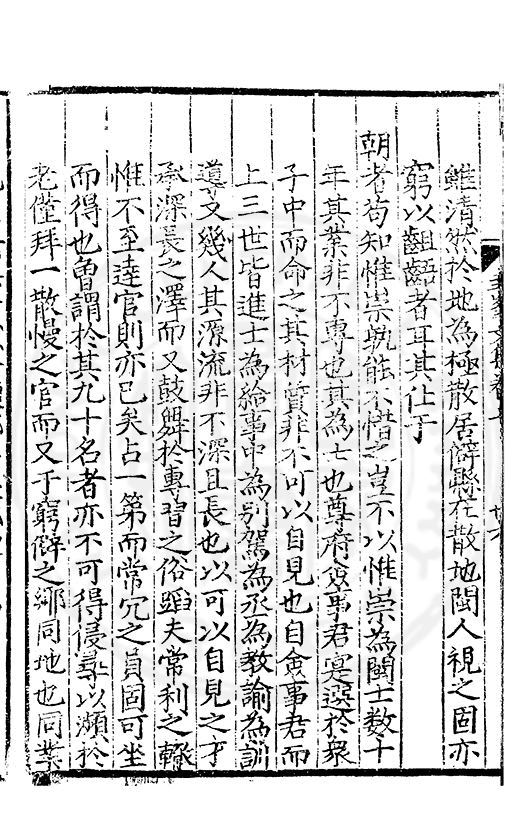 雖清然於地為極散居僻懸在散地閩人視之固亦
窮以齟齬者耳其仕于
朝者苟知惟崇孰能不惜之豈不以惟崇為閩士数十
年其業非不專也其為士也尊府僉事君寔選於衆
子中而命之其材質非不可以自見也自僉事君而
上三世皆進士為給事中為別駕為丞為教諭為訓
導文幾人其源流非不深且長也以可以自見之才
承深長之澤而又鼓舞於專習之俗蹈夫常利之轍
惟不至達官則亦已矣占一第而常冗之員固可坐
而得也曾謂於其九十名者亦不可得侵尋以瀕於
老僅拜一散慢之官而又于窮僻之鄉同地也同業